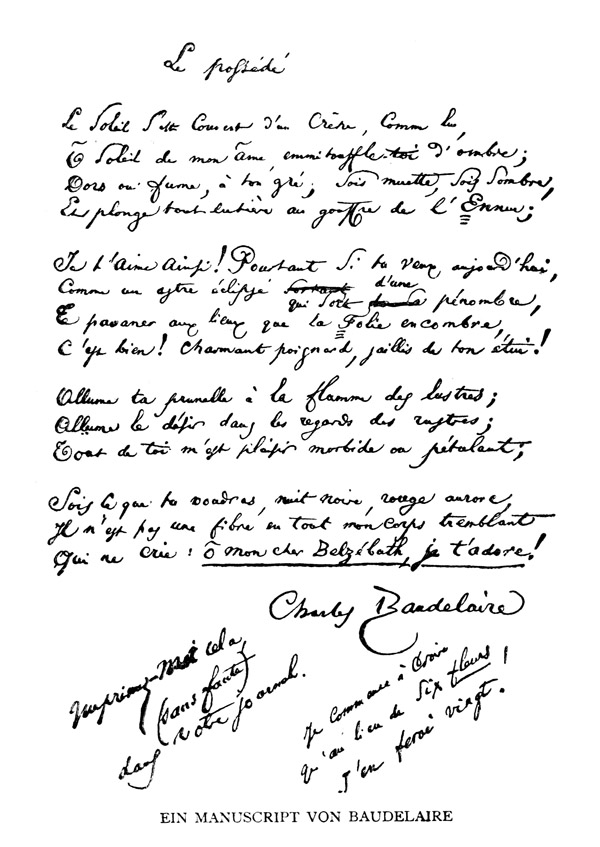 Le possédé
Le Soleil s'est couvert d'un Crêpe, Comme lui,
Ô Soleil de mon âme, emmitouffle-toi d'ombre;
Dors ou fume, à ton gré; Sois muette, Sois Sombre,
Et plonge tout entière au gouffre de l'Ennui;
Je t'aime Ainsi! Pourtant Si tu veux aujourd'hui,
Comme un astre éclipsé sortant d'une
qui Sort pénombre,
Te pavaner aux lieux que la Folie encombre,
C'est bien! Charmant poignard, jaillis de ton étui!
Allume ta prunelle à la flamme des lustres;
Allume le désir dans les regards des rustres;
Tout de toi m'est plaisir morbide ou pétulant;
Sois ce que tu voudras, nuit noire, rouge aurore,
Il n'est pas une fibre en tout mon corps tremblant
Qui ne crie: Ô mon cher Belzébuth, je t'adore!
Charles Baudelaire
Imprimez-Moi cela,
(sans faute)
dans votre journal.
Je commence à croire
Qu'au lieu de Six fleurs!
J'en ferai vingt.
EIN MANUSCRIPT VON BAUDELAIRE